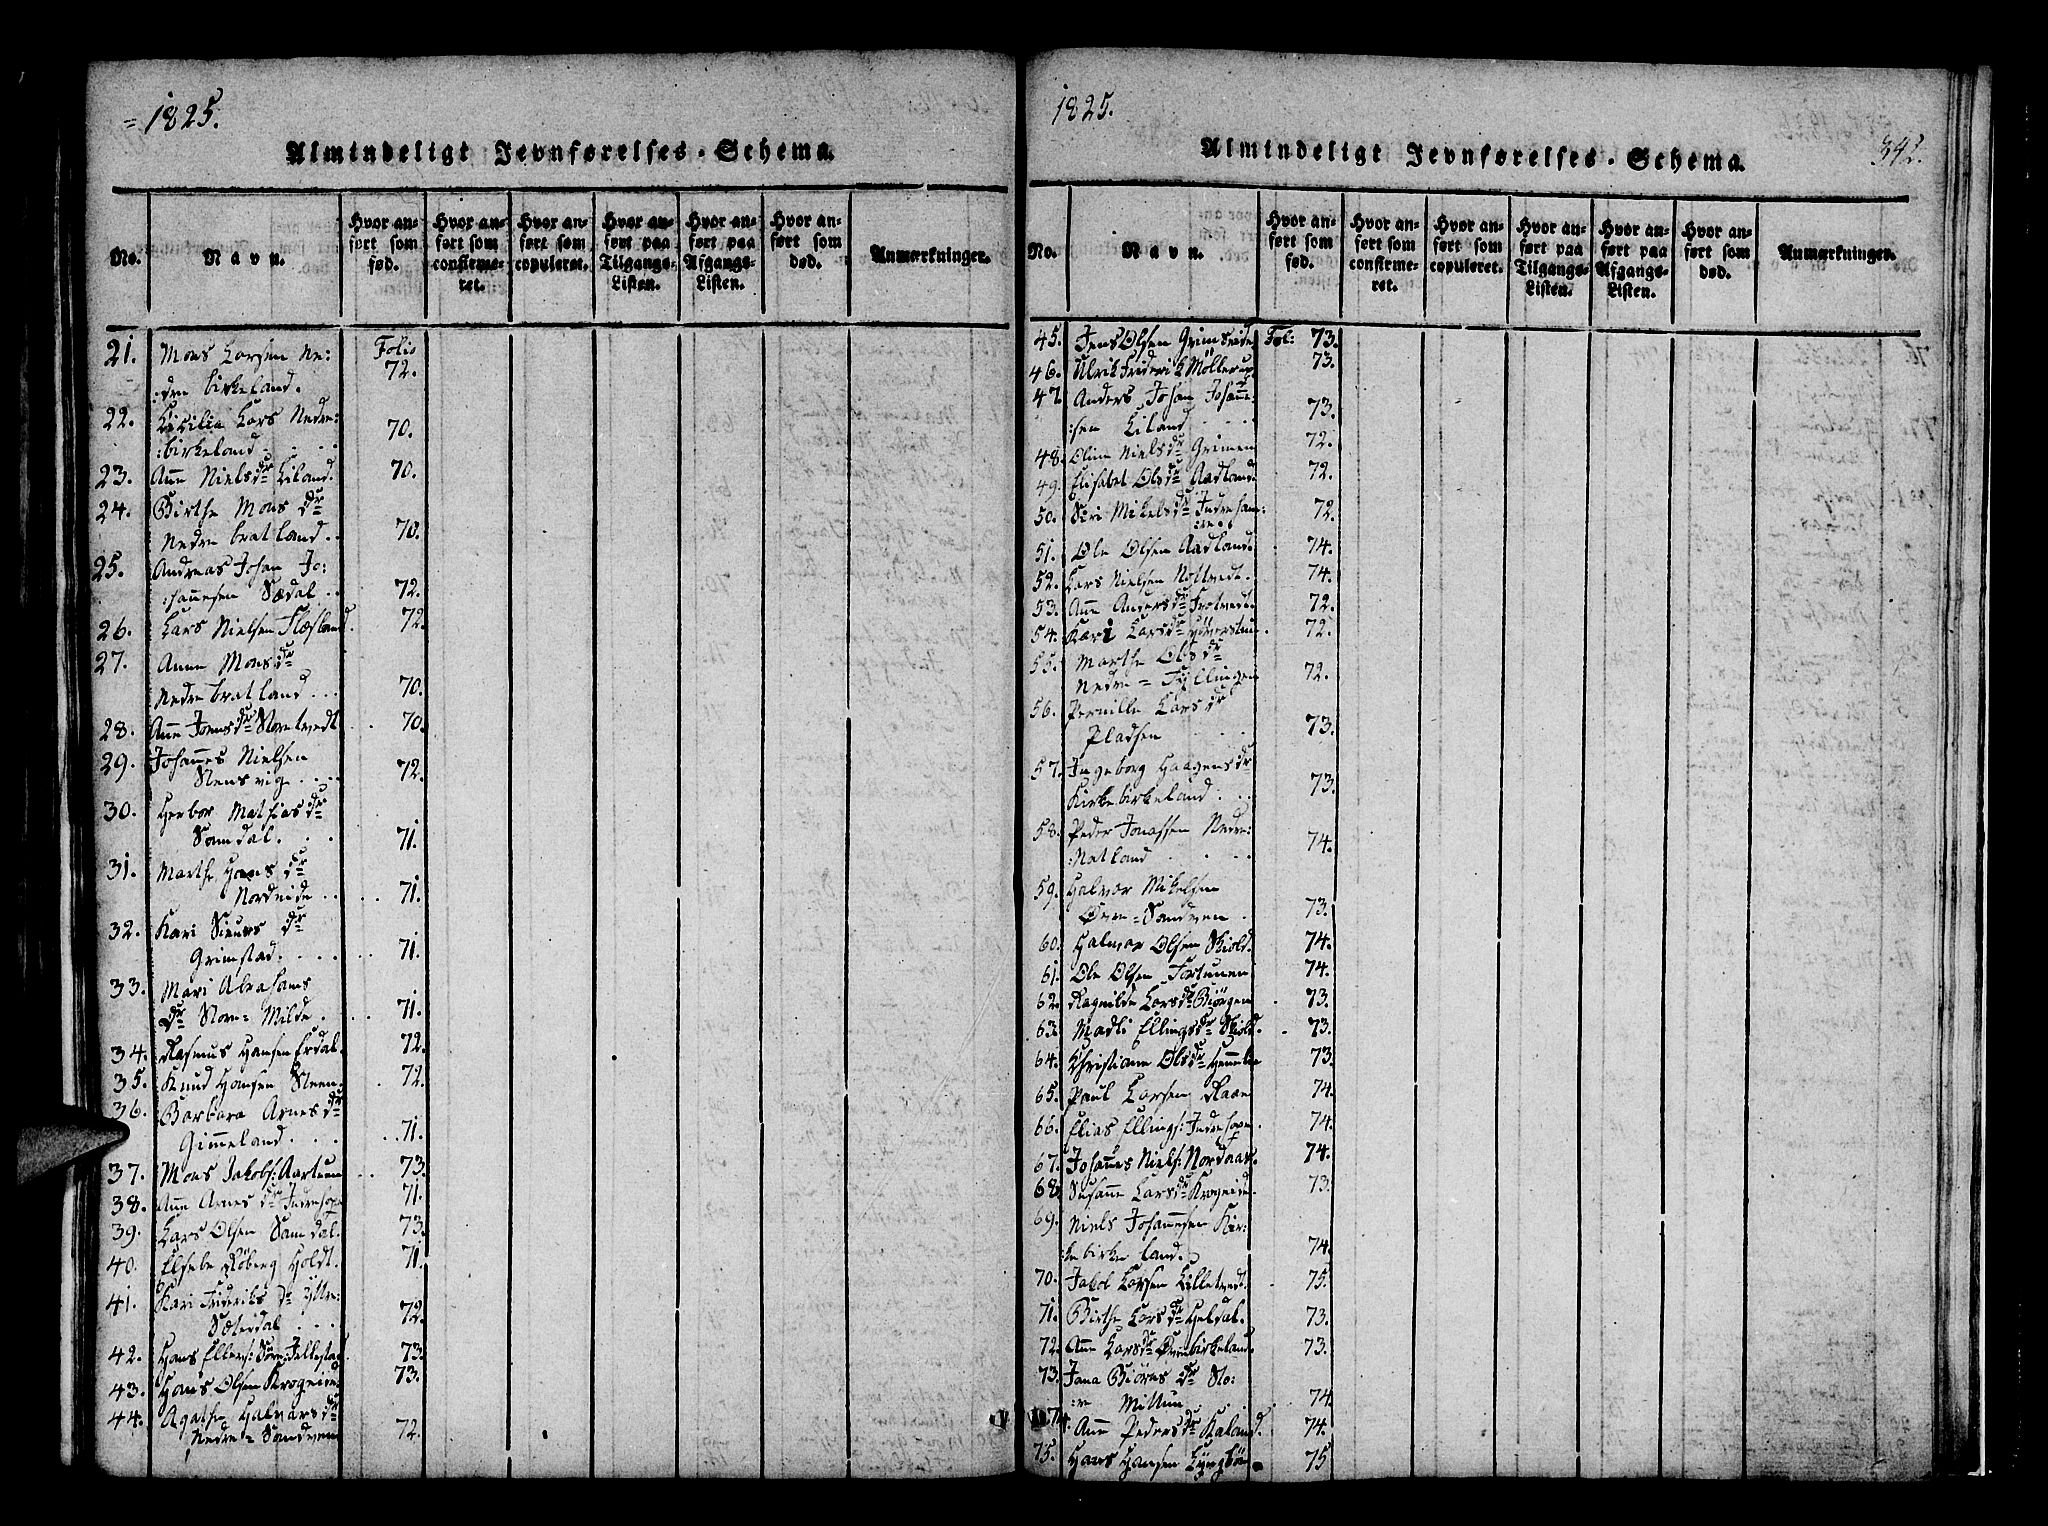 = 1825.
Almindeligt Jevnførelses-Schema.
No.
Navn.
Hvor anført som fød.
Hvor anført som confirmeret.
Hvor anført som copuleret.
Hvor anført paa Tilgangs-Listen.
Hvor anført paa Afgangs-Listen.
Hvor anført som død.
Anmærkninger.
21. Mons Larsen Ne: Folio
:dre birkeland. 72.
22. Cicilia Lars Nedre:
:birkeland 70.
23. Ane Nielsdr Liland. 70.
24. Birthe Mons dr
Nedre bratland.. 70.
25. Andreas Johan Jo:
:hannesen Sædal .. 72.
26. Lars Nielsen Flesland. 72.
27. Anne Mons dr
Nedre bratland... 70.
28. Ane Joensdr Storetvedt.. 70.
29. Johannes Nielsen
Stensvig.... 72.
30. Herbor Mathias dr
Samdal. . . 71.
31. Marthe Hans dr
Nordeide.. .. 71.
32. Kari Siurs dr
Grimstad..... .. 71.
33. Mari Abrahams
dr Store-Milde. .. 71.
34. Rasmus Hansen Erdal. 72.
35. Knud Hansen Steen. . 72.
36. Barbara Arnesdr
Gimmeland.... ... 71.
37. Mons Jakobs: Aartuun .. 73.
38. Ane Arnes dr Indrehope 71.
39. Lars Olsen Samdal. 73.
40. Elsebe Röberg Holdt. 71.
41. Kari Frideriks dr Yttre:
Sæterdal ... 72.
42. Hans Ellers: Søre:Jellestad. 73.
43. Hans Olsen Krogeide. 73.
44. Agathe Halvarsdr
Nedre-Sandven 72.
1825.
342.
Almindeligt Jevnførelses-Schema.
No.
Navn.
Hvor anført som fød.
Hvor anført som confirmeret.
Hvor anført som copuleret.
Hvor anført paa Tilgangs-Listen.
Hvor anført paa Afgangs-Listen.
Hvor anført som død.
Anmærkninger.
45. Jens Olsen Grimseide Fol: 73.
46. Ulrik Friderik Möllerup 73.
47. Anders Johan Johanne:
:sen Liland.... 73.
48. Oline Nielsdr Grimen 72.
49. Elisabet Olsdr Aadland. 72.
50. Siri Mikelsdr Indrehau:
:ene. 72.
51. Ole Olsen Aadland. . 74.
52. Lars Nielsen Nottvedt. 74.
53. Ane Andersdr Frotvedt. 72.
54. Kari Larsdr Yverstun. 72.
55. Marthe Olsdr
Nedre=Fyllingen 72.
56. Pernille Larsdr
Pladsen .... 73.
57. Ingeborg Haagensdr
Kirkebirkeland... 73.
58. Peder Jonassen Nedre:
:Natland .... 74.
59. Halvor Mikelsen
Øvre=Sandven . 73.
60. Halvor Olsen Skiold. 74.
61. Ole Olsen Fortunen 74.
62. Ragnilde Larsdr Biörgen . 73.
63. Madli Ellingsdr Skiold. . 73.
64. Christiane Olsdr 73.
65. Paul Larsen Raae 74.
66. Elias Ellings: Indrehope. 74.
67. Johannes Niels: Nordaas. 74.
68. Susanne Larsdr Krogeide. 73.
69. Niels Johannesen Kir:
:ke birkeland. 74.
70. Jakob Larsen Lilletvedt. . 75.
71. Birthe Larsdr Heldal. 73.
72. Ane Larsdr Øvrebirkeland 73.
73. Jana Biörns dr Sto:
:re Mittun . 74.
74. Ane Pedersdr Kaland. 74.
75. Hans Hansen Lyngbön. 75